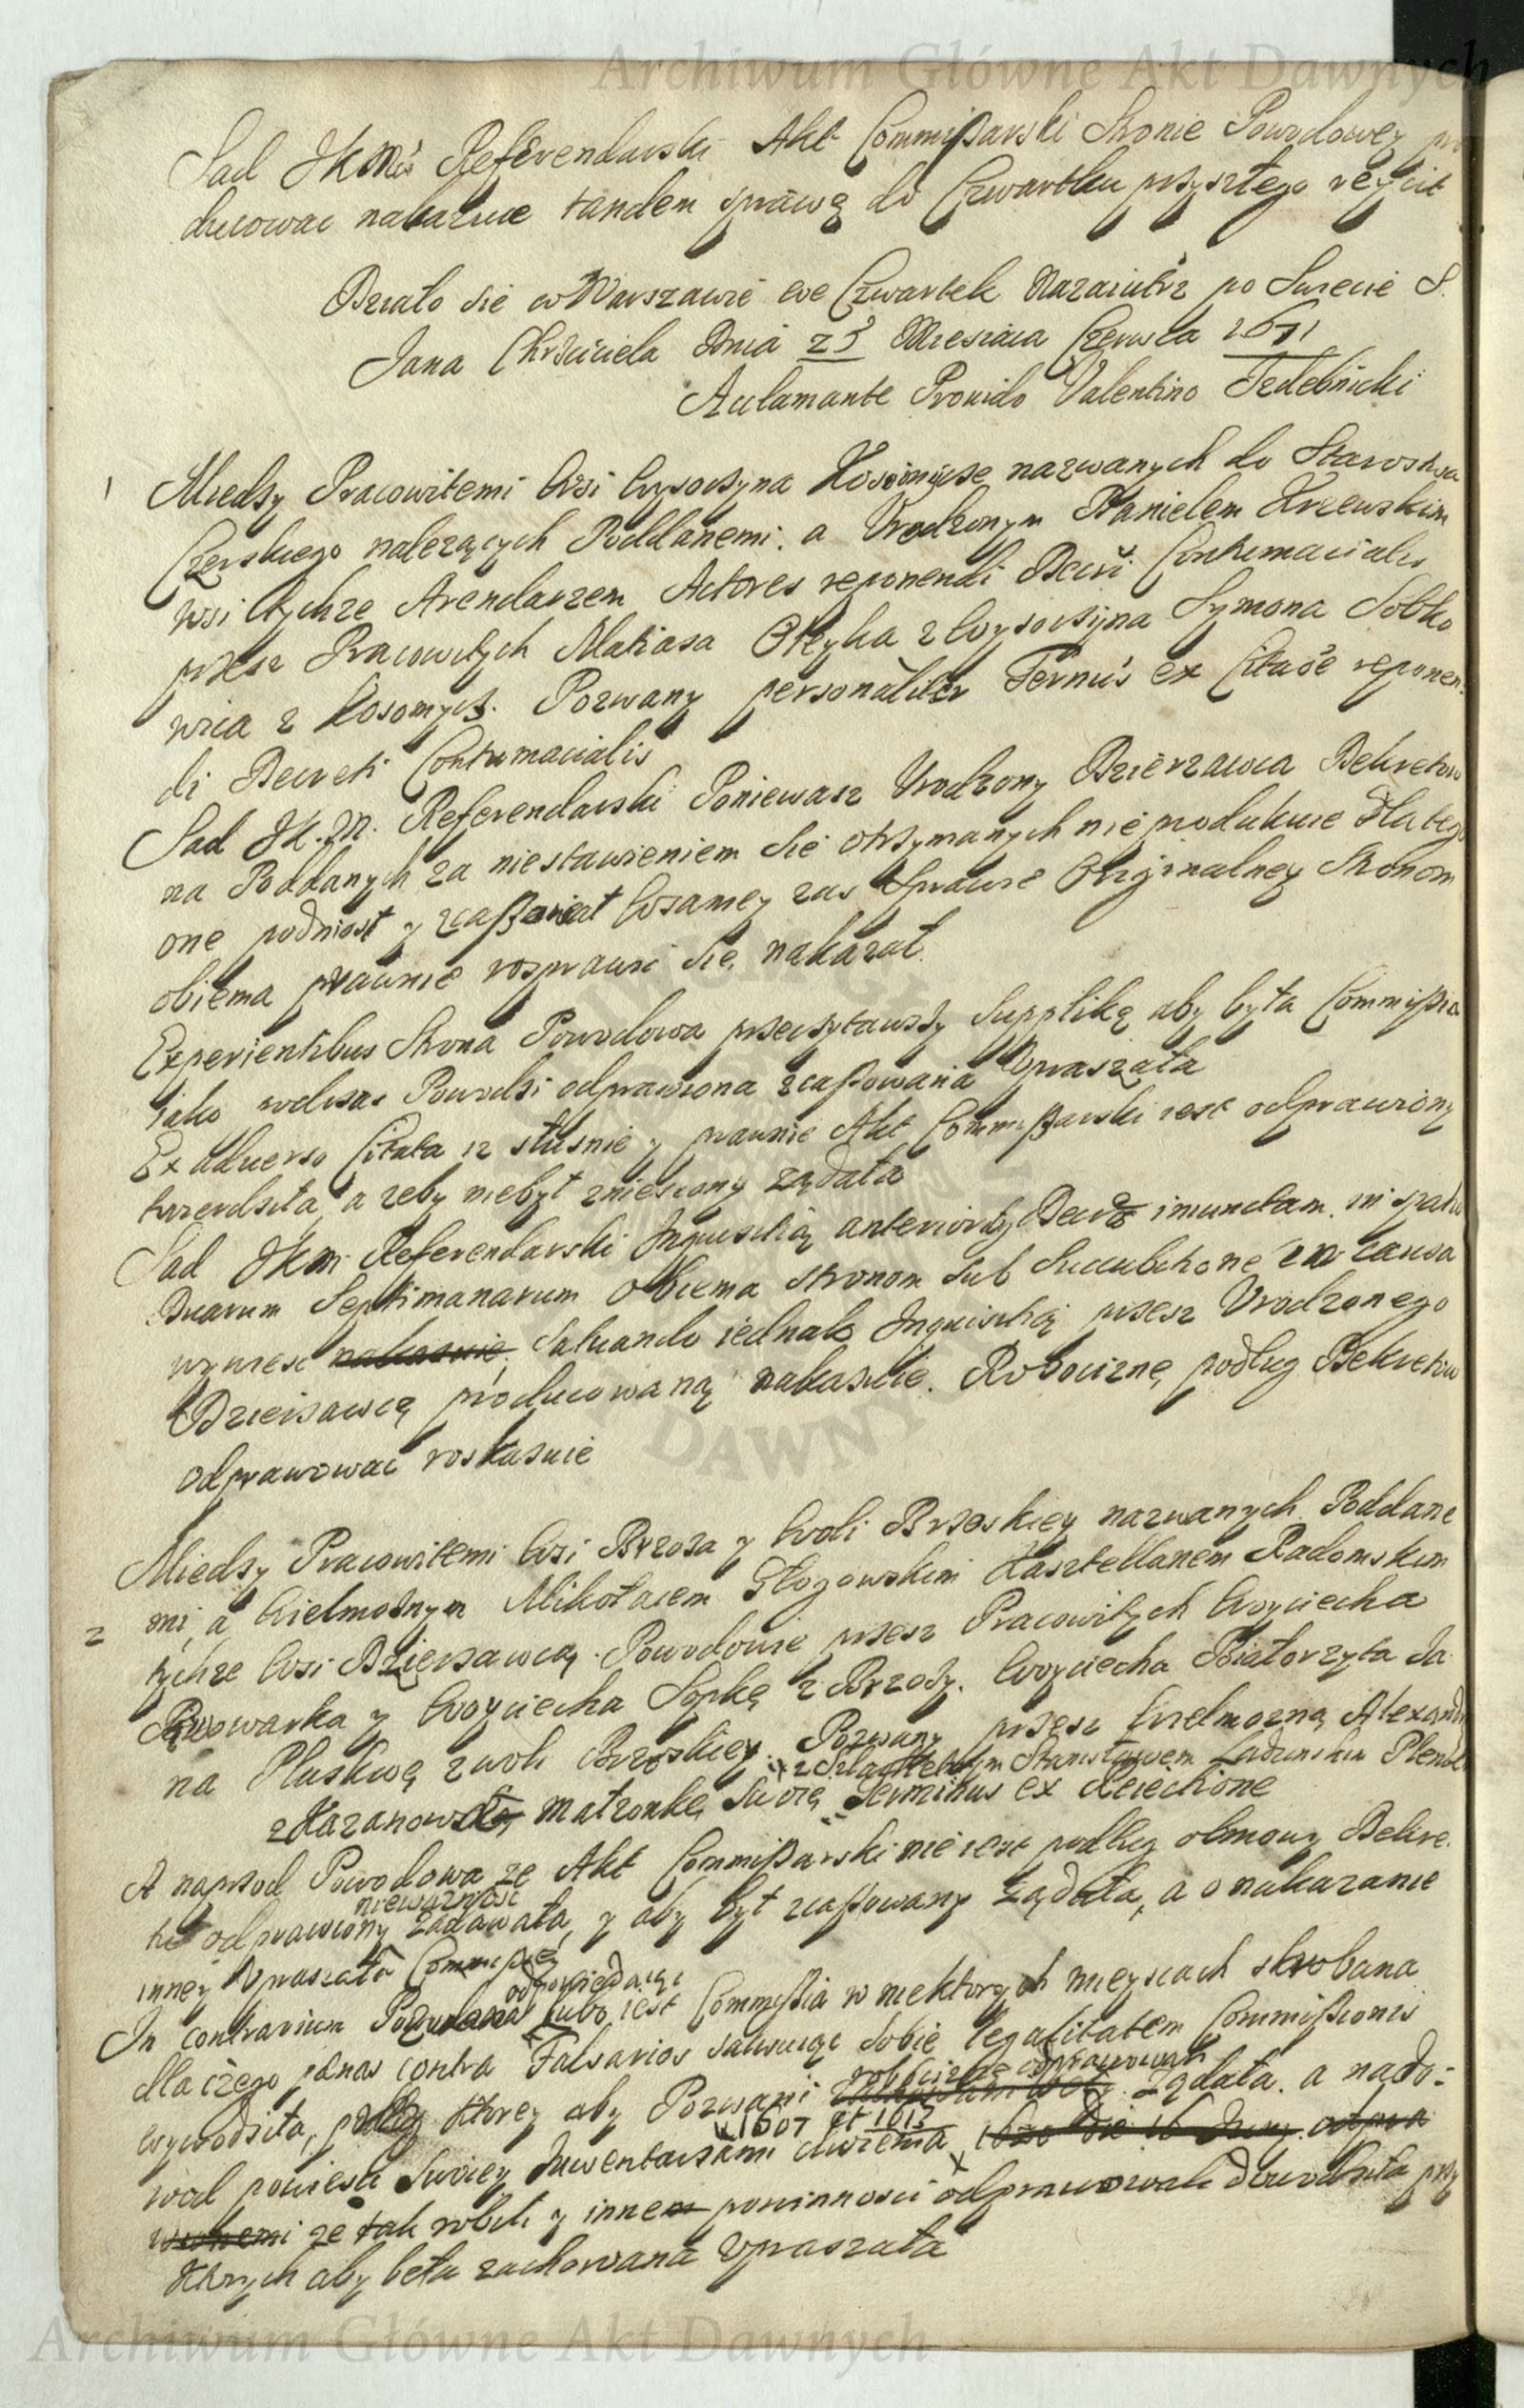 Archiwum Główne Akt Dawnych
Sad JKMci Referendarski Akt Commißarski Stronie Powodowey
ducowac nakazuie tandem sprawę do Czwartku przyszłego reycit
Działo sie w Warszawie we Czwartek Nazaiutrz po Swięcie S.
Jana Chrzciciela Dnia 25 Miesiaca Czerwca 1671
Aclamante Prouido Valentino Trdebnicki
1 Miedzy Pracowitemi Wsi Wysoczyna Kosomęsze nazwanych do Starostwa
Czerskiego nalezących Poddanemi. a Vrodzonym Danielem Krzewskim
wsi tychze Arendarzem Actores reponendi Decrti Contumacialis
przez Pracowitych Matiasa Oleyka z Wysoczyna Symona Sobko
wica z Kosomęsz. Pozwany personaliter Termĩs ex Citaõe reponen
di Decreti Contumacialis
Sad JK.M. Referendarski Poniewasz Vrodzony Dzierzawca Dekretow
na Poddanych za niestawieniem sie otrzymanych nie produkuie Dla tego
one podniosł y zcaßował Wsamey zas Sprawie Originalney Stronom
obiema prawnie rosprawic sie nakazał.
Experientibus Strona Powodowa przeczytawszy Supplikę aby była Commißia
iako podczas Powodzi odprawiona zcaßowana Vpraszała
Ex aduerso Citata iz słusnie y prawnie Akt Commißarski iest odprawiony
twierdziła, a zeby niebył zniesiony ządała
Sad JKm Referendarski Inquisitią anteriorib Decrõ iniunctam. in spatio
Duarum Septimanarum obiema stronom sub Succubitione in causa
wywiesc nakazuie. Saluando iednak Inquisitią przez Vrodzonego
Dzierzawcę producowaną nakazuie. Robociznę podług Dekretow
odprawowac roskazuie
Miedzy Pracowitemi Wsi Brzoza y Woli Brzoskiey nazwanych Poddane
2 mi, a Wielmoznym Mikołaiem Głogowskim Kasztellanem Radomskim
tychze Wsi Dzierzawcą. Powodowie przez Pracowitych Woyciecha
Piwowarka y Woyciecha Sopkę z Brzozy. Woyciecha Białorzyta Ja
na Pluskwę z woli Brzoskiey. Pozwany przez Wielmozną Alexandr
z Szlachetnym Stanisławem Ladunskim Plenip
z Kazanowskĩ, matzonkę Swoię Terminus ex Reiectione
A naprzod Powodowa ze Akt Commißarski nie iest podług obmowy Dekre
niewaznosc
tu odprawiony zadawała, y aby był zcaßowany ządała, a o nakazanie
inney Vpraszała Commißię
odpowiedaiąc
In contrarium Pozwana Lubo iest Commißia w niektorych mieyscach skrobana
dla czego pãnas contra Falsarios salwuiąc sobie legalitatem Commißionis
robocizne odprawowali
wywodziła, podług ktorey aby Pozwani ządała. a nado:
1607 et 1613
wod powiesci Swoiey Inwentarzami dwiema 1620 die 16 Juny
ze tak robili y inne powinnosci odprawowali dowodziła przy
ktorych aby beła zachowana Vpraszała
Archiwum Główne Akt Dawnych